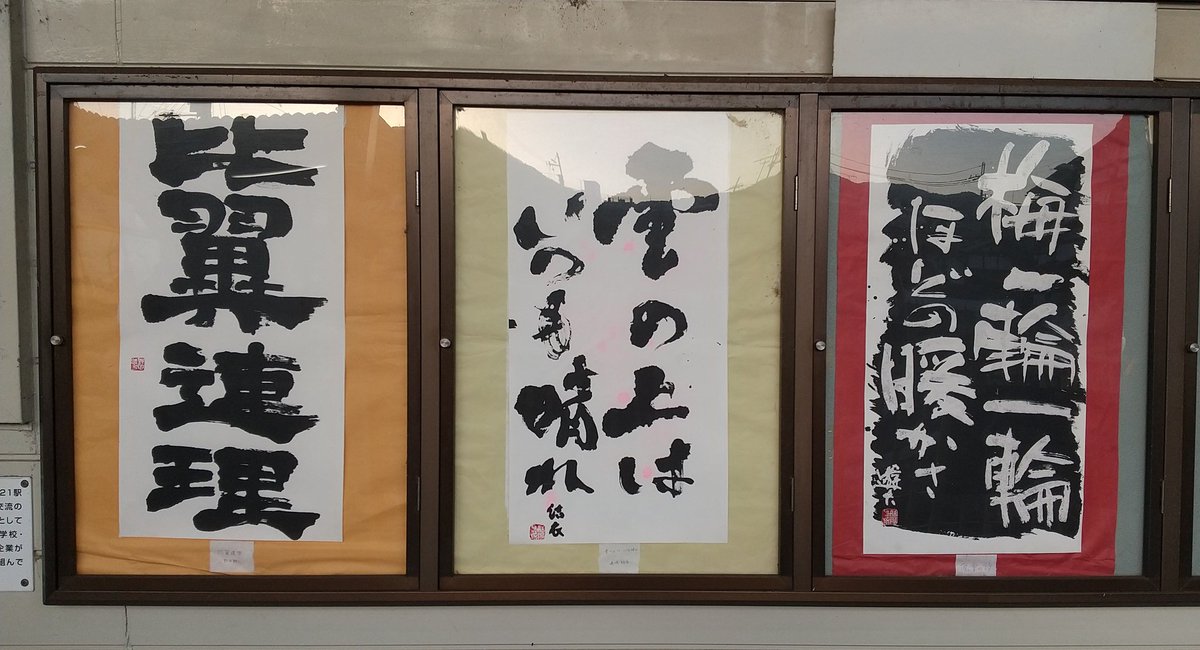 比翼連理
雲の上は
いつも晴れ
梅一輪一輪
ほどの暖かさ
21駅
交流の
として
学校・
企業が
組んで